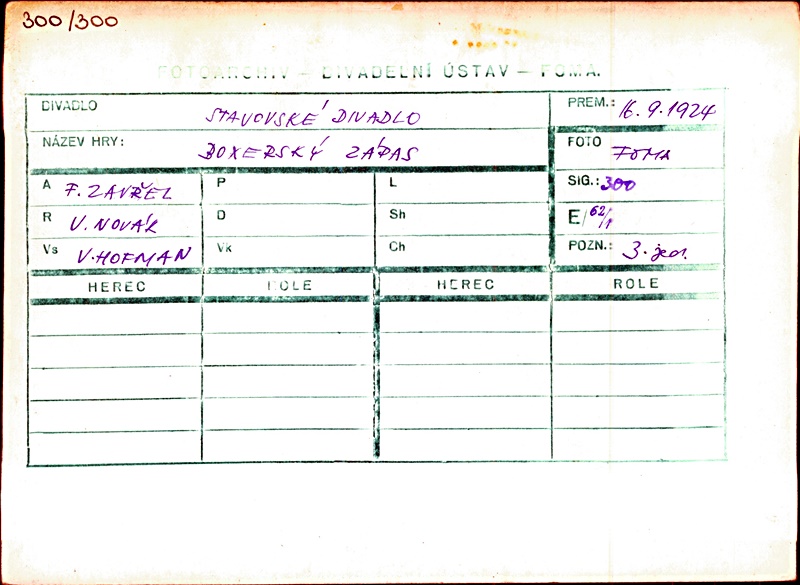 300/300
FOTOARCHIV — DIVADELNÍ ÚSTAV — FOMA.
DIVADLO STAVOVSKÉ DIVADLO PREM.: 16.9.1924
NÁZEV HRY: BOXERSKÝ ZÁPAS FOTO FOMA
A F. ZAVŘEL P L SIG.: 300
R V. NOVÁK D Sh E/62/1
Vs V. HOFMAN Vk Ch POZN.: 3. jedn.
HEREC ROLE HEREC ROLE